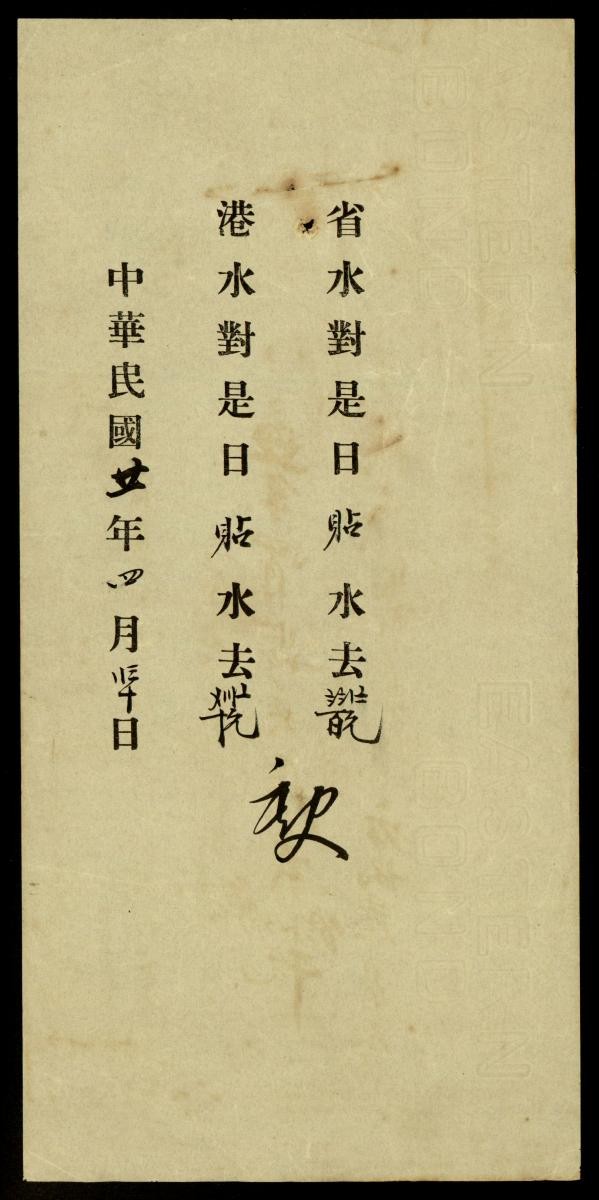 省水對是日貼水去
港水對是日貼水去
中華民國廿年四月 日
EASTERN
BOND